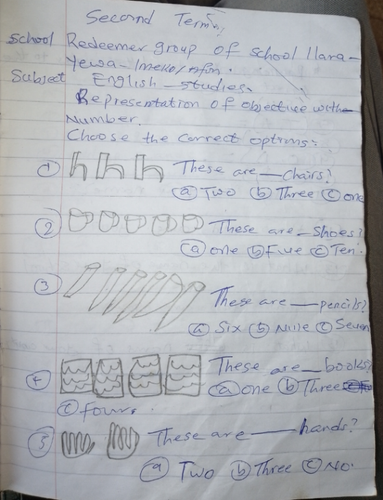 Second Term,
School Redeemer group of school Ilara-
Yewa-Imeko/Afon.
Subject English - studies.
Representation of objective with
Number.
Choose the correct options:
① These are — chairs?
ⓐ Two ⓑ Three ⓒ one
② These are — shoes?
ⓐ one ⓑ Five ⓒ Ten.
③ These are — pencils?
ⓐ Six ⓑ Nine ⓒ Seven
④ These are — books?
ⓐ one ⓑ Three
ⓒ fours.
5 These are — hands?
ⓐ Two ⓑ Three ⓒ No.